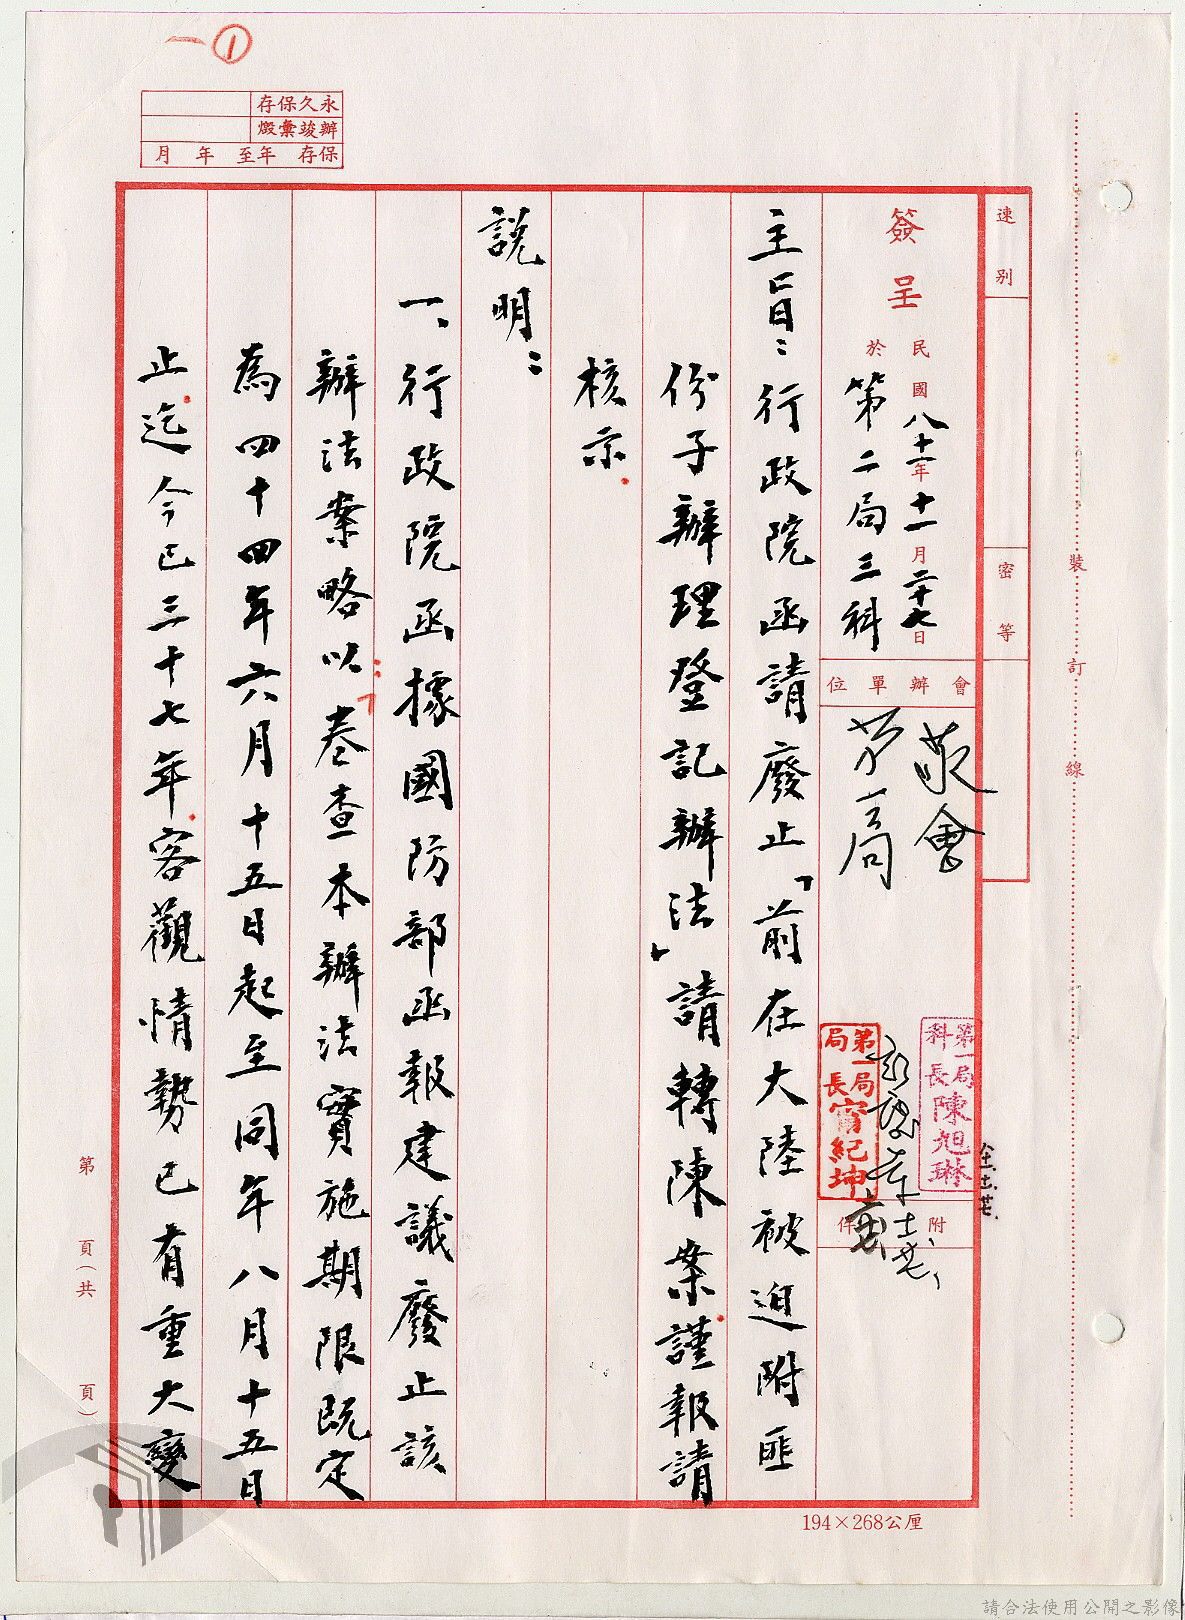 一 ①
永久保存
辦竣彙燬
保存 年至 年 月
速別
密等
簽呈
民國八十一年十一月二十七日
於第二局三科
會辦單位
敬會
第一局
第一局科長陳旭琳
第一局局長甯紀坤
附件
主旨：行政院函請廢止「前在大陸被迫附匪
份子辦理登記辦法」請轉陳案謹報請
核示
說明：
一、行政院函據國防部函報建議廢止該
辦法案略以「叁查本辦法實施期限既定
為四十四年六月十五日起至同年八月十五日
止迄今已三十七年客觀情勢已有重大變
第 頁（共 頁）
裝 訂 線
194×268公厘
請合法使用公開之影像